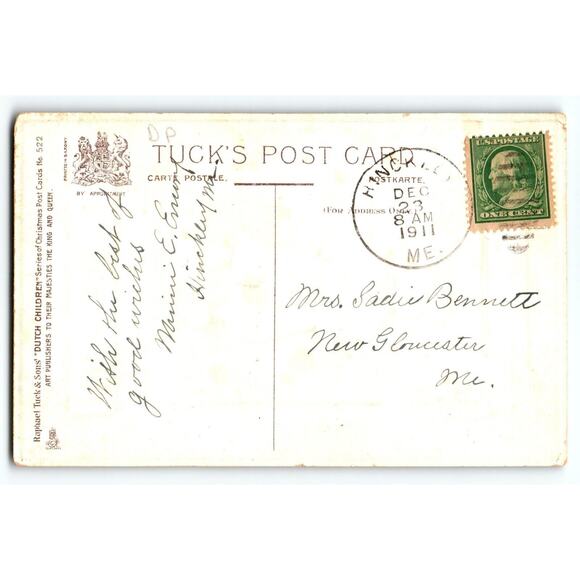 Raphael Tuck & Sons' "DUTCH CHILDREN" Series of Christmas Post Cards No. 522
ART PUBLISHERS TO THEIR MAJESTIES THE KING AND QUEEN.
BY APPOINTMENT
DP
TUCK'S POST CARD
CARTE POSTALE.
POSTKARTE.
(For Address Only)
With the best of
good wishes
E.
Hinckley, Me.
HINCKLEY
DEC
23
8 AM
1911
ME.
U.S. POSTAGE
ONE CENT
Mrs. Sadie Bennett
New Gloucester
Me.